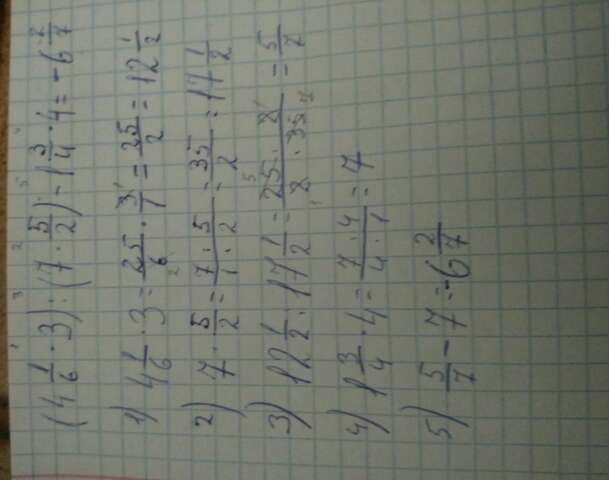 (4 1/6 · 3) : (7 · 5/2) - 1 3/4 · 4 = -6 2/7
1) 4 1/6 · 3 = 25/6 · 3/1 = 25/2 = 12 1/2
2) 7 · 5/2 = 7/1 · 5/2 = 35/2 = 17 1/2
3) 12 1/2 : 17 1/2 = 25 · 2/2 · 35 = 5/7
4) 1 3/4 · 4 = 7 · 4/4 · 1 = 7
5) 5/7 - 7 = -6 2/7